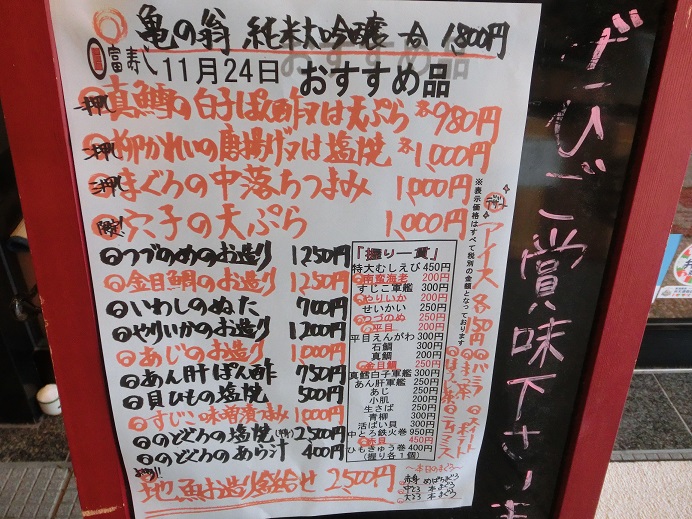 亀の翁 純米大吟醸 一合 1,800円
富寿し 11月24日 おすすめ品
一押し 真鱈の白子ぽん酢又は天ぷら 各980円
二押し 柳かれいの唐揚げ又は塩焼 各1,000円
三押し まぐろの中落ちつまみ 1,000円
穴子の天ぷら 1,000円
つづのめのお造り 1250円
金目鯛のお造り 1250円
いわしのぬた 700円
やりいかのお造り 1200円
あじのお造り 1,000円
あん肝ぽん酢 750円
貝ひもの塩焼 500円
すじこ味噌漬つまみ 1000円
のどぐろの塩焼 2,500円
のどぐろのあら汁 400円
地魚お造り盛合せ 2,500円
「握り一貫」
特大むしえび 450円
南蛮海老 200円
すじこ軍艦 300円
やりいか 200円
せいかい 250円
つづのめ 250円
平目 200円
平目えんがわ 300円
石鯛 300円
真鯛 200円
金目鯛 250円
真鱈白子軍艦 300円
あん肝軍艦 300円
あじ 250円
小肌 200円
生さば 250円
青柳 300円
活ばい貝 300円
中とろ鉄火巻 950円
赤貝 450円
ひもきゅう巻 400円
(握り各1個)
※表示価格はすべて税別の金額となっております
デザート アイス 各150円
バニラ
まっ茶
～本日のまぐろ～
赤身 めばちまぐろ
中とろ 本まぐろ
大とろ 本まぐろ
ぜひご賞味下さいま